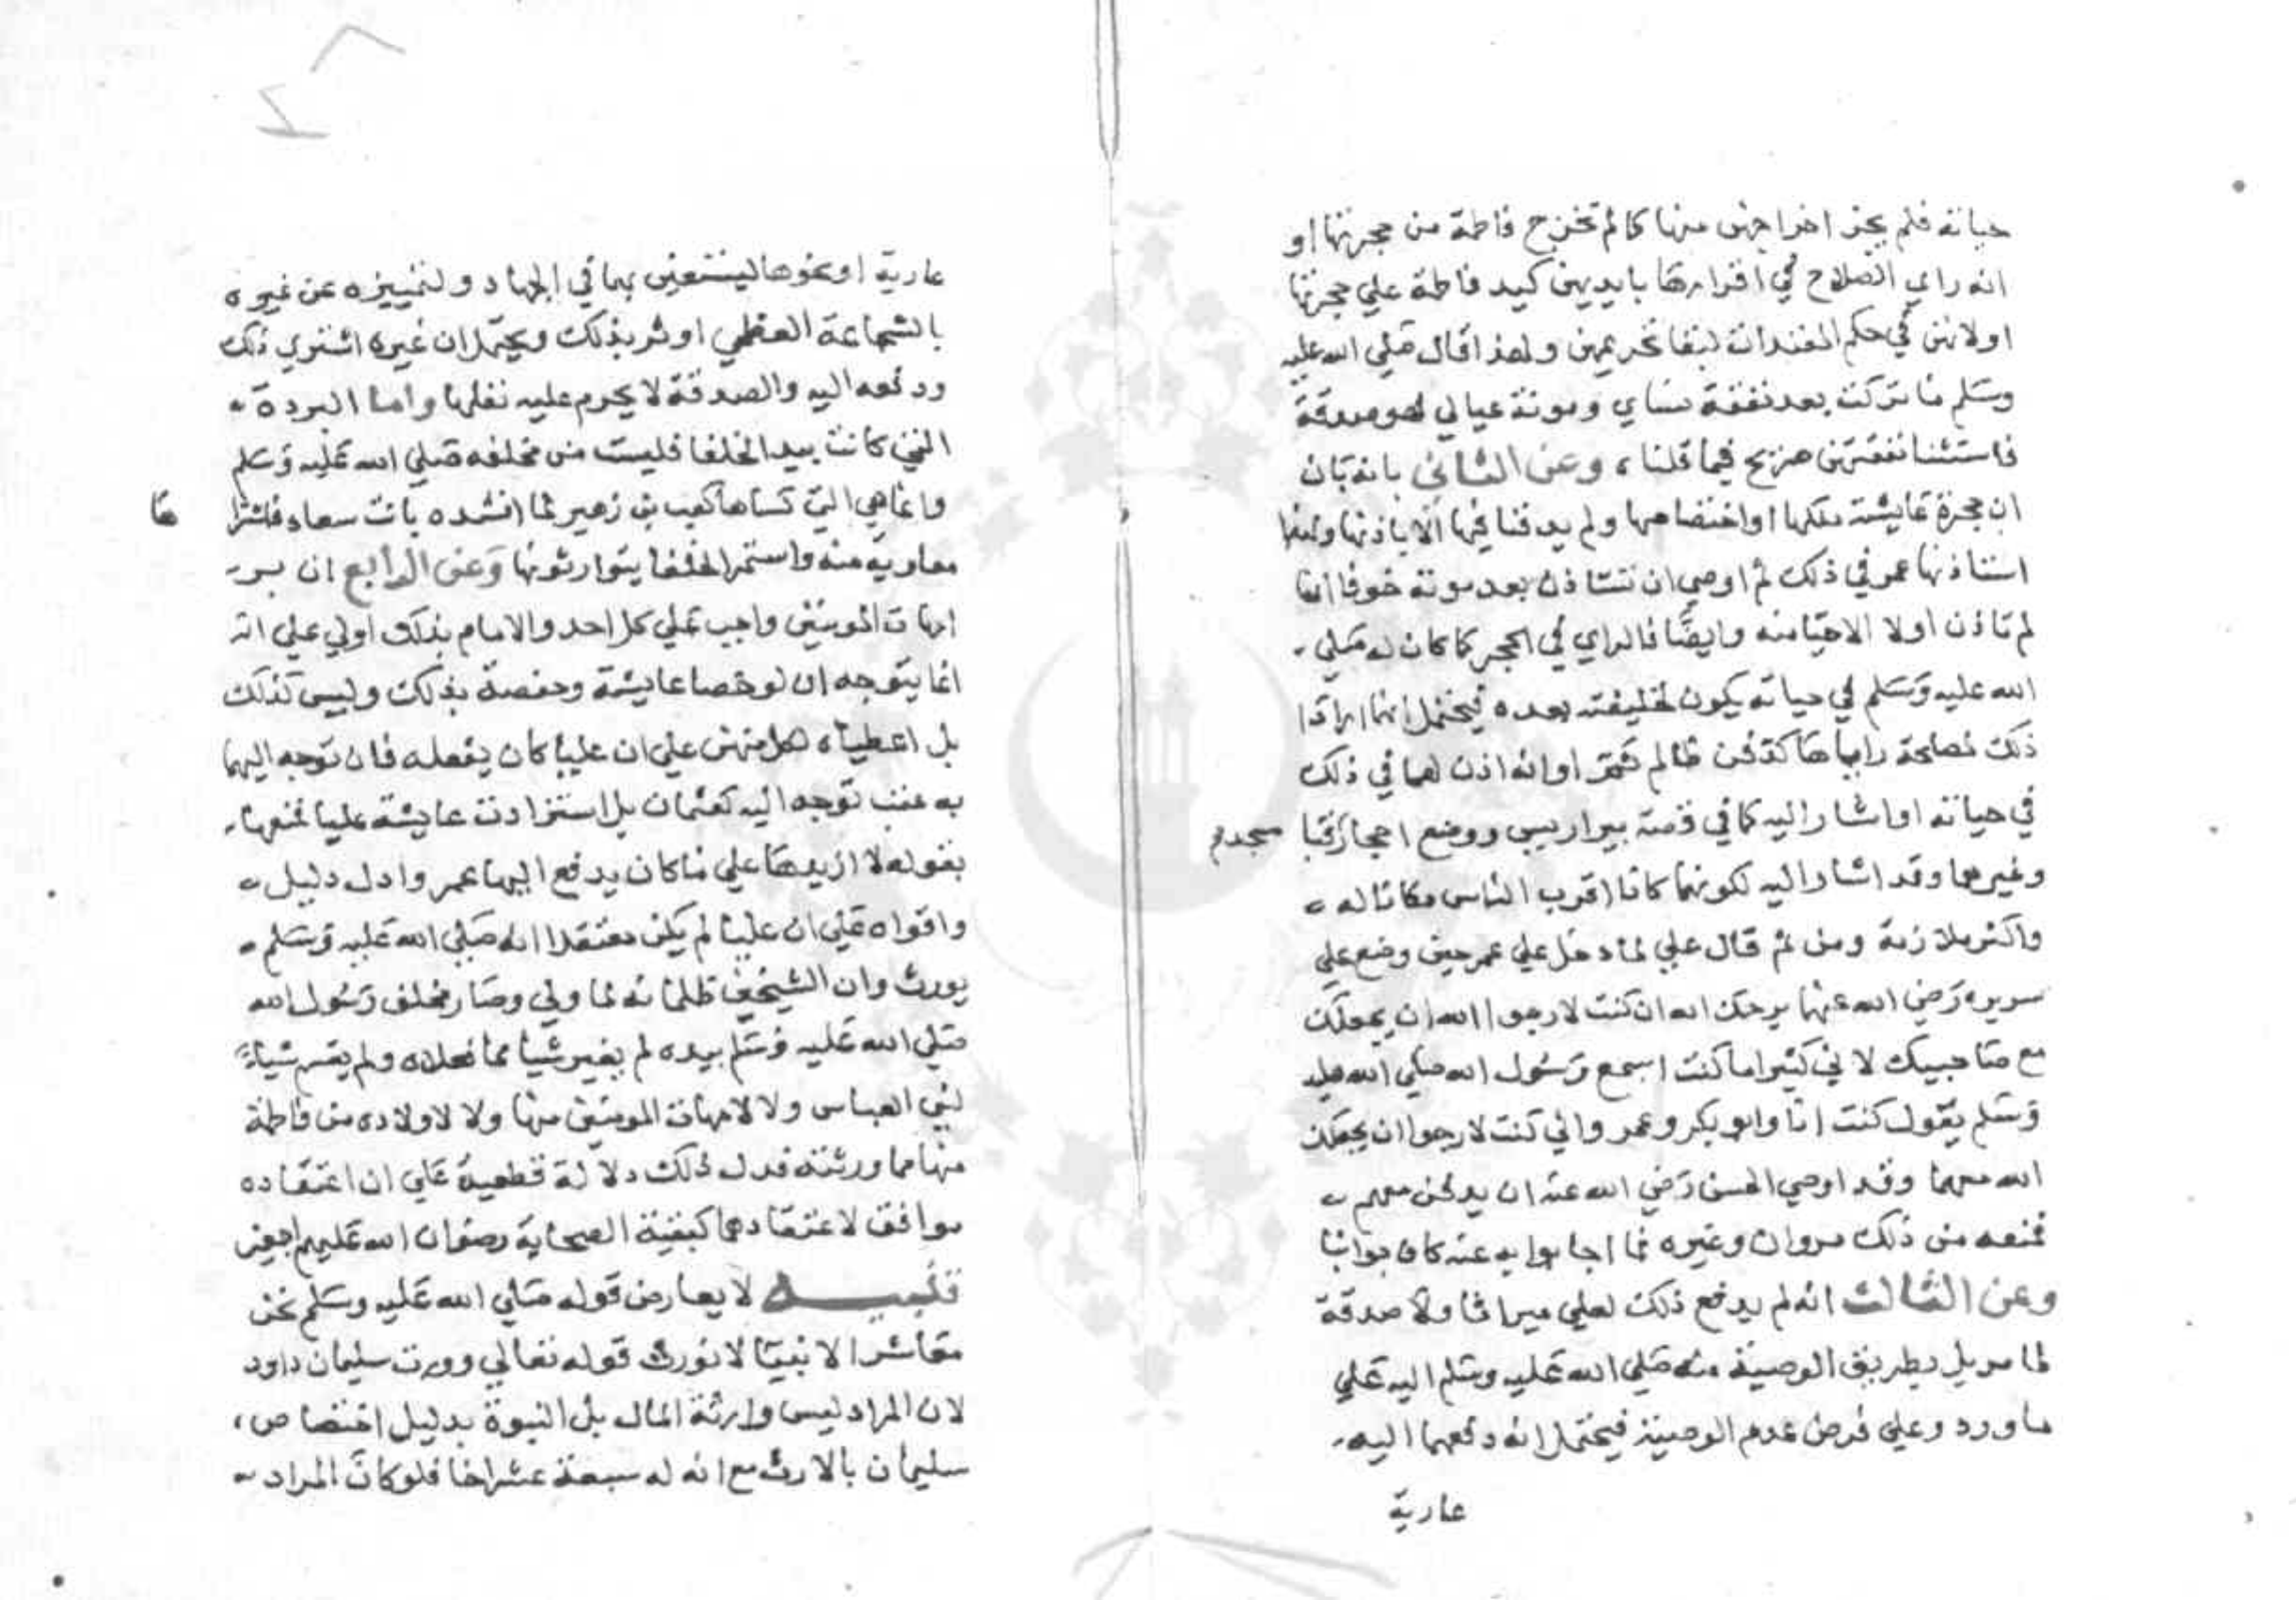 حياته فلم يجز اخراجهن منها كما لم تخرج فاطمة من حجرتها او
انه راي الصلاح في اقرارها بايديهن كيد فاطمة علي حجرتها
اولانهن في حكم المعتدات لبقا تحريمهن ولهذا قال صلي الله عليه
وسلم ما تركت بعد نفقة نساي ومونة عيالي فهو صدقة
فاستثنا نفقتهن صريح فيما قلنا، وعن الثاني بانه بان
ان حجرة عايشة ملكها او اختصاصها ولم يدفنا فيها الا باذنها ولهذا
استاذنها عمر في ذلك ثم اوصي ان تستاذن بعد موته خوفا انها
لم تاذن اولا الاحيا منه وايضا فالراي في الحجر كما كان له صلي
الله عليه وسلم في حياته يكون لخليفته بعده فيحتمل انهما ارادا
ذلك لمصلحة راياها كدفن ظالم ثمة او انه اذن لهما في ذلك
في حياته او اشار اليه كما في قصة بير اريس ووضع احجار قبا مسجدم
وغيرها وقد اشار اليه لكونهما كانا اقرب الناس مكانا له
واكثر ملازمة ومن ثم قال علي لما دخل علي عمر حين وضع علي
سريره رضي الله عنهما يرحمك الله ان كنت لارجوا الله ان يجعلك
مع صاحبيك لاني كثيرا ما كنت اسمع رسول الله صلي الله عليه
وسلم يقول كنت انا وابو بكر وعمر واني كنت لارجوا ان يجعلك
الله معهما وقد اوصي الحسن رضي الله عنه ان يدفن معهم
فمنعه من ذلك مروان وغيره فما اجابوا به عنه كان جوابنا
وعن الثالث انه لم يدفع ذلك لعلي ميراثا ولا صدقة
لما مر بل بطريق الوصية منه صلي الله عليه وسلم اليه علي
ما ورد وعلي فرض عدم الوصية فيحتمل انه دفعهما اليه
عارية
عارية او نحوها ليستعين بهما في الجهاد ولتمييزه عن غيره
بالشجاعة العظمي اوثر بذلك ويحتمل ان غيره اشتري ذلك
ودفعه اليه والصدقة لا يحرم عليه نفلها واما البردة
التي كانت بيد الخلفا فليست من مخلفه صلي الله عليه وسلم
وانما هي التي كساها كعب بن زهير لما انشده بانت سعاد فاشترا ها
معاوية منه واستمر الخلفا يتوارثونها وعن الرابع ان بر
امهات المومنين واجب علي كل احد والامام بذلك اولي علي انه
انما يتوجه ان لو خصا عايشة وحفصة بذلك وليس كذلك
بل اعطياه لكل منهن علي ان عليا كان يفعله فان توجه اليهما
به عتب توجه اليه كعثمان بل استزادت عايشة عليا فمنعها
بقوله لا ازيدها علي ما كان يدفع اليها عمر وادل دليل
واقواه علي ان عليا لم يكن معتقدا انه صلي الله عليه وسلم
يورث وان الشيخين ظلما انه لما ولي وصار مخلف رسول الله
صلي الله عليه وسلم بيده لم يغير شيا مما فعلاه ولم يقسم شياء
لبني العباس ولا لامهات المومنين منها ولا لاولاده من فاطمة
منها مما ورثته فدل ذلك دلالة قطعية علي ان اعتقاده
موافق لاعتقادهما كبقية الصحابة رضوان الله عليهم اجمعين
تنبيه لا يعارض قوله صلي الله عليه وسلم نحن
معاشر الانبيا لا نورث قوله تعالي وورث سليمان داود
لان المراد ليس وارثة المال بل النبوة بدليل اختصاص،
سليمان بالارث مع انه له سبعة عشر اخا فلو كان المراد